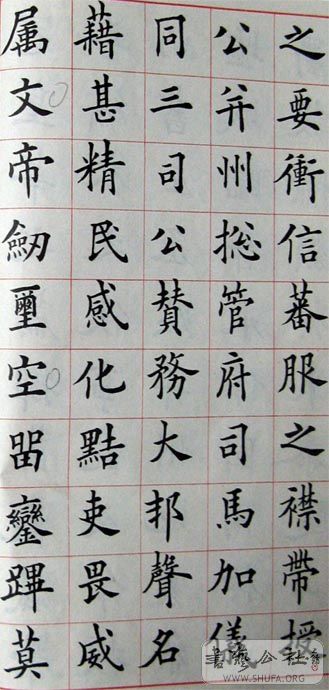 之要衝信蕃服之襟帶授
公并州捴管府司馬加儀
同三司公賛務大邦聲名
藉甚精民感化黠吏畏威
属文帝劒璽空㽞鑾蹕莫
書藝公社
WWW.SHUFA.ORG